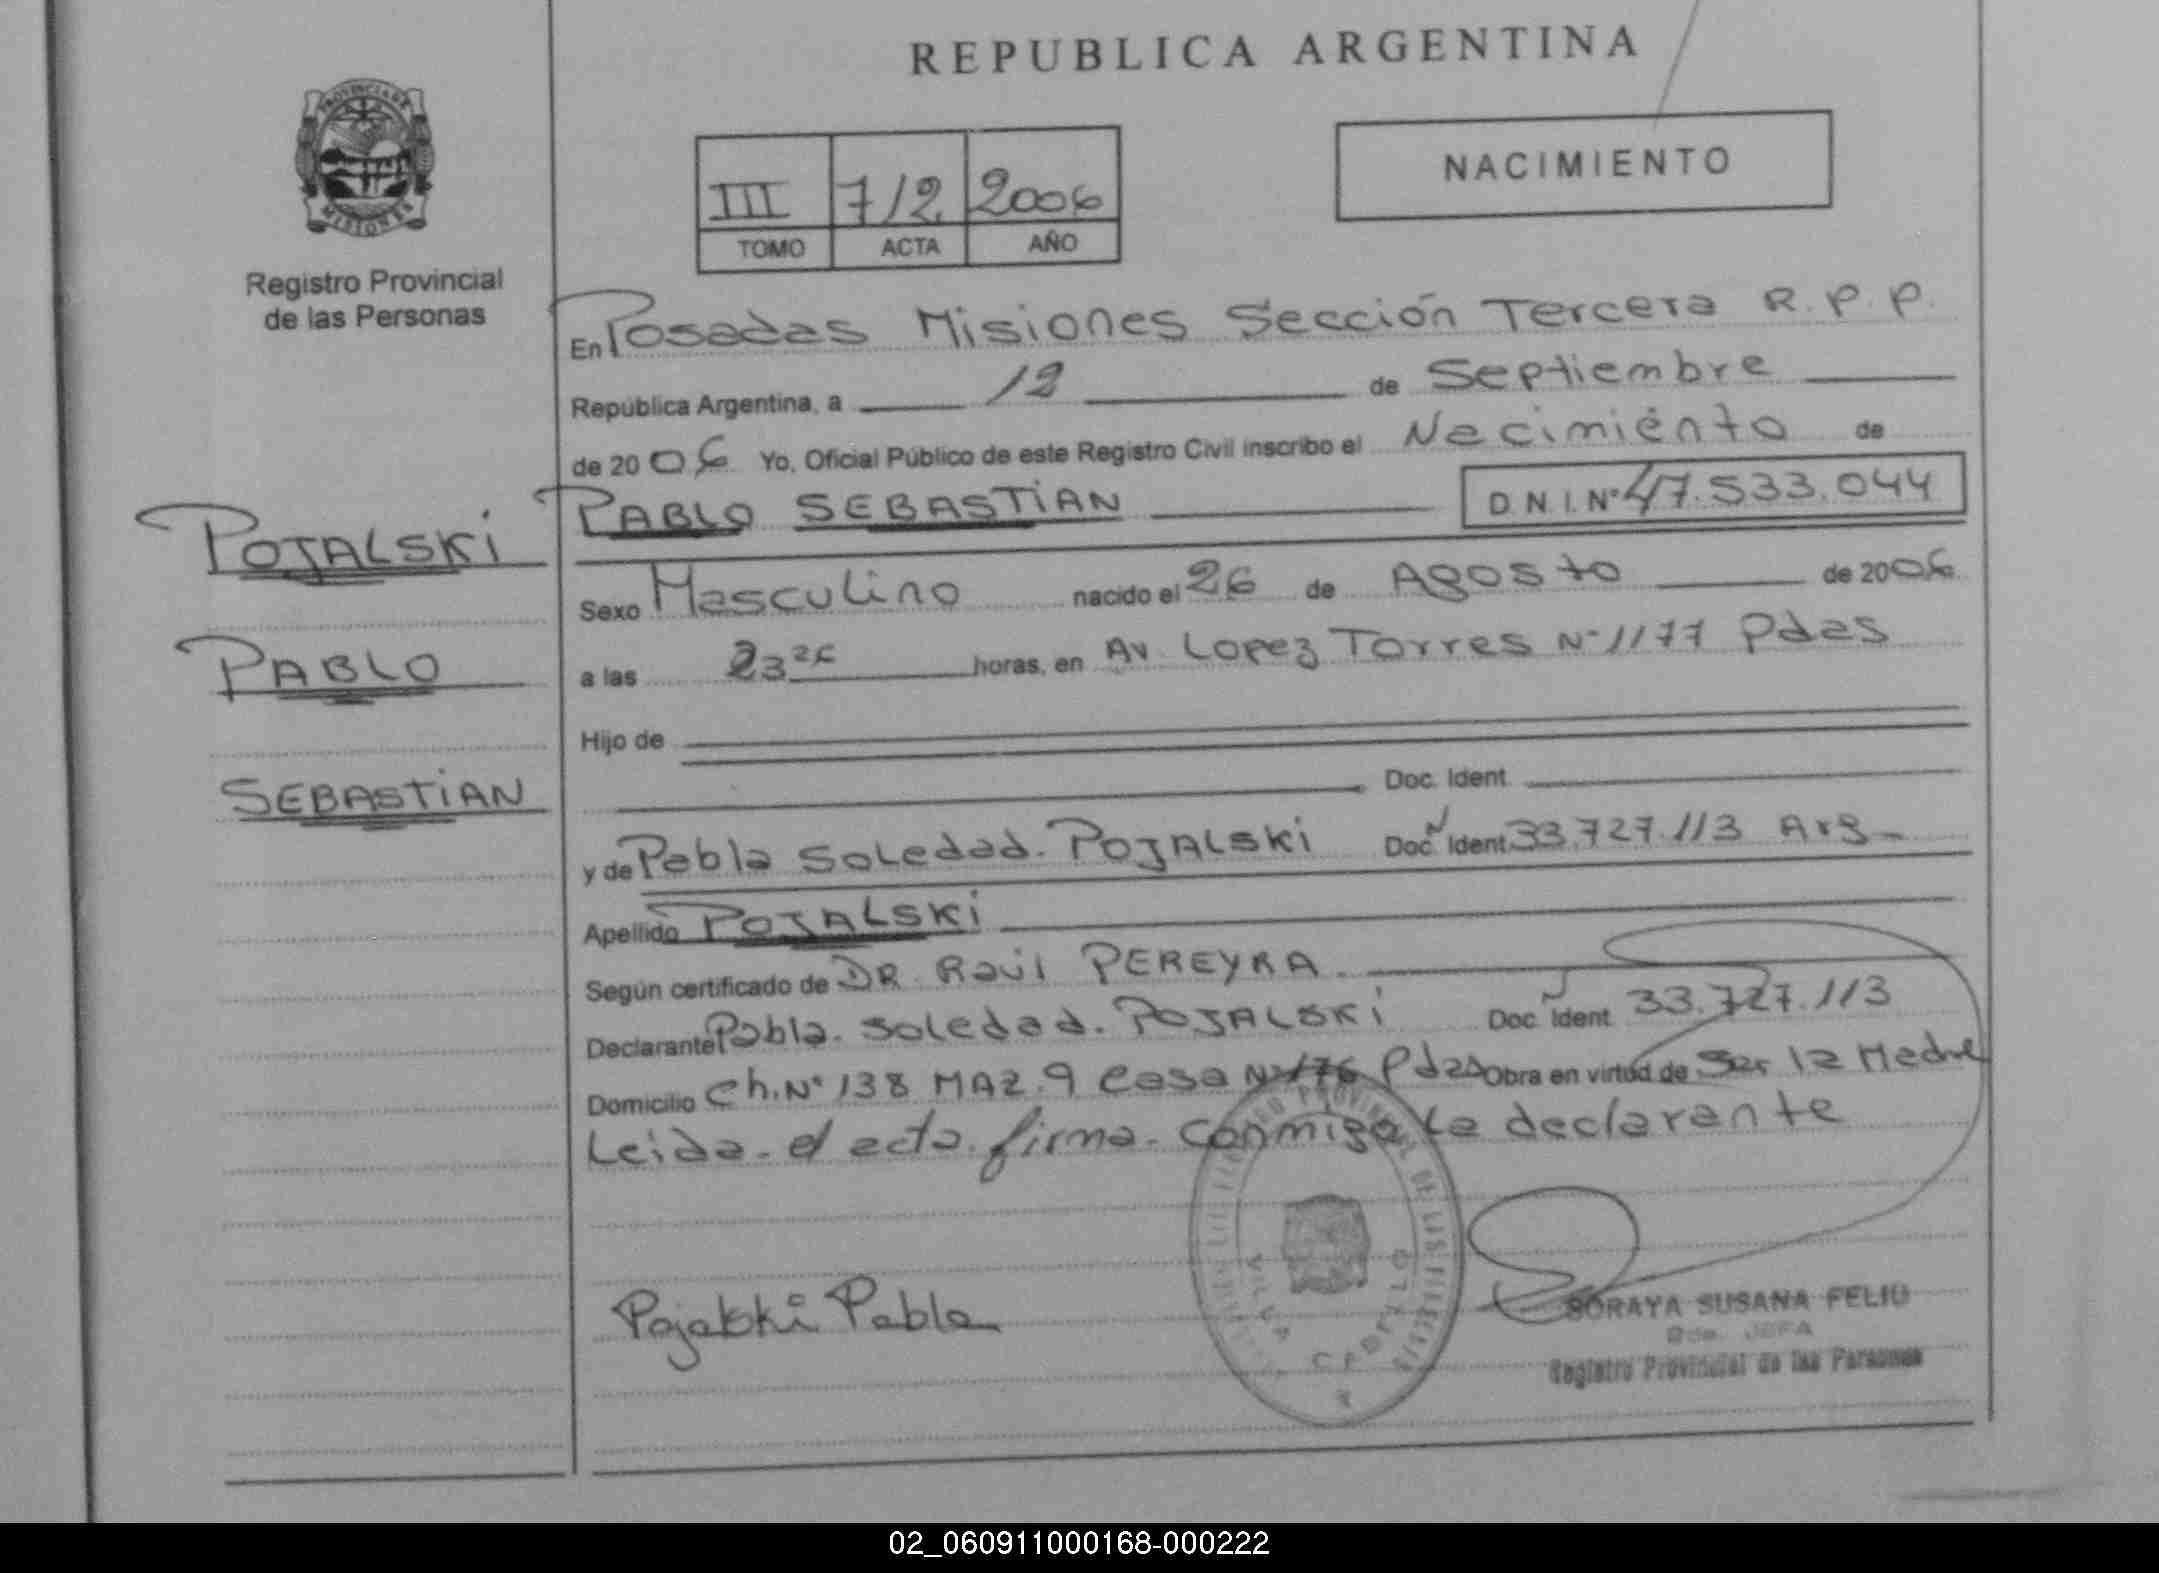 REPUBLICA ARGENTINA
PROVINCIA DE
MISIONES
Registro Provincial
de las Personas
III 712 2006
TOMO ACTA AÑO
NACIMIENTO
En Posadas Misiones Sección Tercera R.P.P.
República Argentina, a 12 de Septiembre
de 2006 Yo, Oficial Público de este Registro Civil inscribo el Nacimiento de
PABLO SEBASTIAN D.N.I. Nº 47.533.044
POJALSKI
PABLO
SEBASTIAN
Sexo Masculino nacido el 26 de Agosto de 2006
a las 23 26 horas, en Av Lopez Torres Nº 1177 Pdas
Hijo de
Doc. Ident.
y de Pabla Soledad. POJALSKI Doc. Ident. 33.727.113 Arg
Apellido POJALSKI
Según certificado de DR. Raúl PEREYRA.
Declarante Pabla. Soledad. POJALSKI Doc. Ident. 33.727.113
Domicilio Ch. Nº 138 MAZ. 9 Casa Nº 176 Pdas Obra en virtud de Ser la Madre
Leida el acta firma conmigo la declarante
Pojalski Pabla
SORAYA SUSANA FELIU
JEFA
Registro Provincial de las Personas
02_060911000168-000222